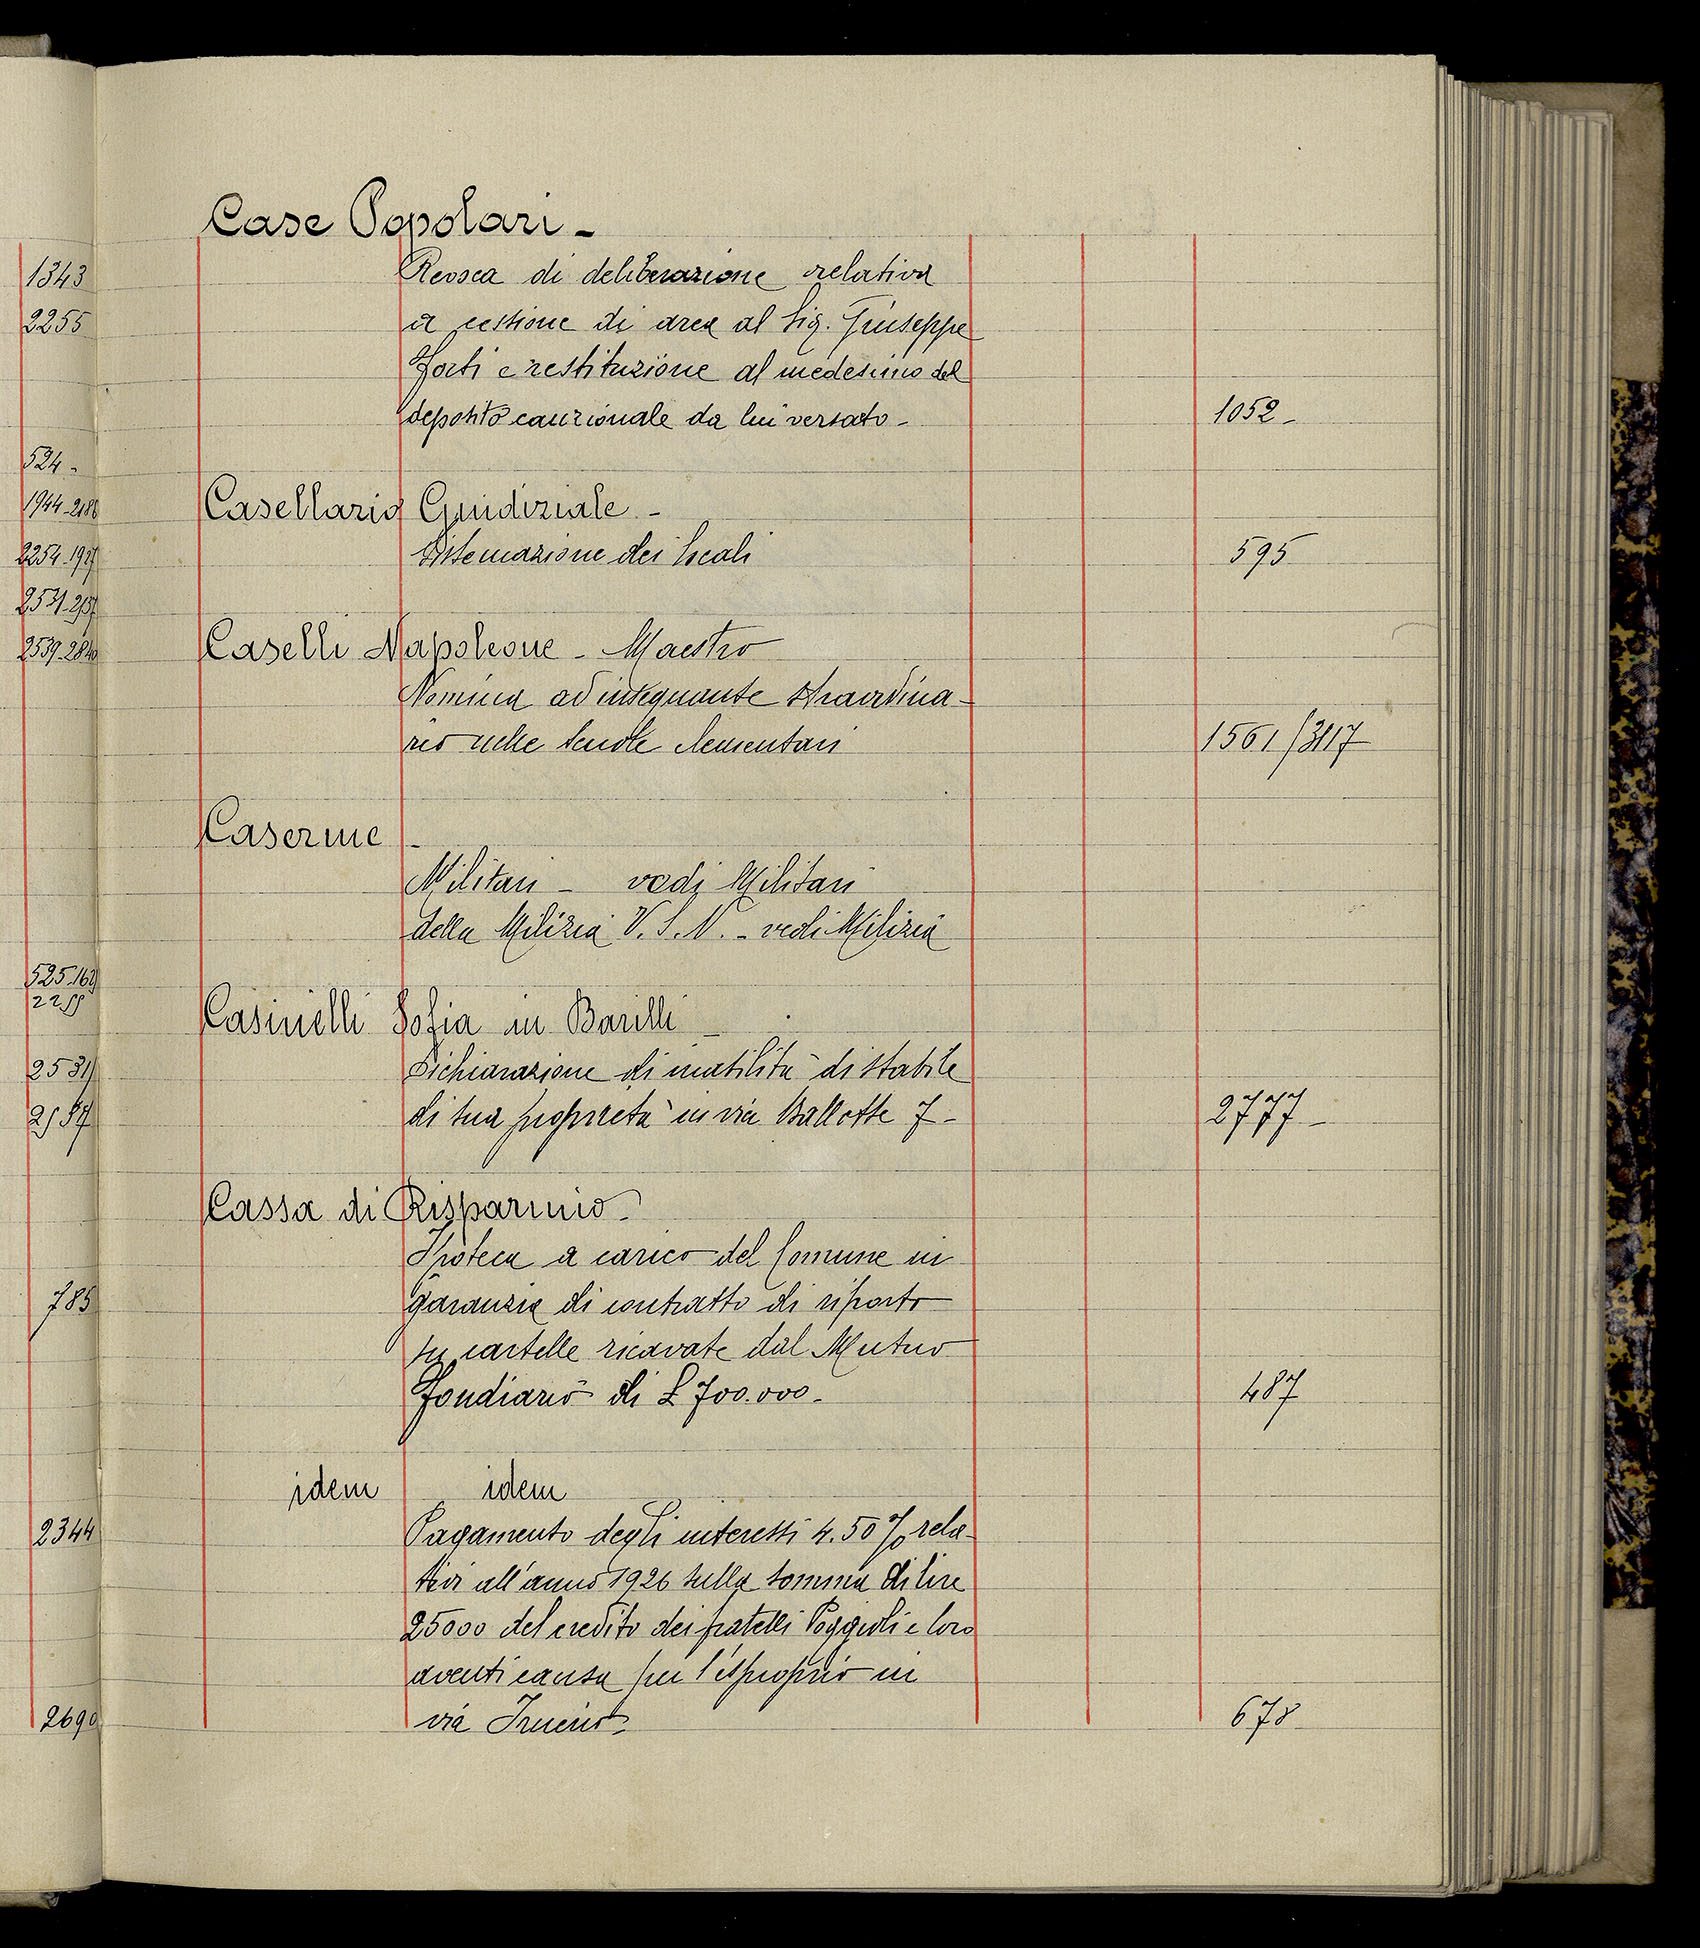 1343
2255
524-
1944-2186
2254-1927
2531-2537
2539-2840
2531
2537
785
2344
2690
Case Popolari -
Revoca di deliberazione relativa
a cessione di area al Sig. Giuseppe
Forti e restituzione al medesimo del
deposito cauzionale da lui versato - 1052 -
Casellario Guidiziale -
Sistemazione dei locali 595
Caselli Napoleone - Maestro
Nomina ad insegnante straordina-
rio nelle Scuole elementari 1561/3117
Caserme -
Militari - vedi Militari
della Milizia V. S. N. - vedi Milizia
Casinelli Sofia in Barilli -
Dichiarazione di inutilità di stabile
di sua proprietà in via Ballotte 7 - 2777 -
Cassa di Risparmio -
Ipoteca a carico del Comune in
garanzia di contratto di riporto
su cartelle ricavate dal Mutuo
fondiario di £ 700.000 - 487
idem idem
Pagamento degli interessi 4.50% rela-
tivi all'anno 1926 sulla somma di lire
25000 del credito dei fratelli Poggioli e loro
aventi causa per l'esproprio in
via Irnerio - 678